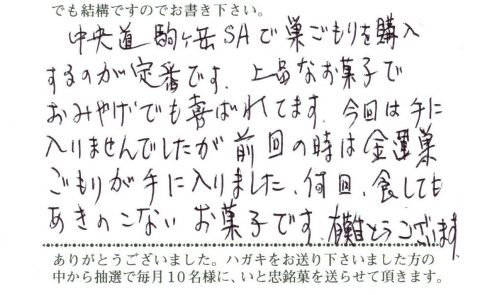 でも結構ですのでお書き下さい。
中央道駒ヶ岳SAで巣ごもりを購入
するのが定番です。上品なお菓子で
おみやげでも喜ばれてます。今回は手に
入りませんでしたが前回の時は金運巣
ごもりが手に入りました、何回、食しても
あきのこないお菓子です。有難とうございます
ありがとうございました。ハガキをお送り下さいました方の
中から抽選で毎月10名様に、いと忠銘菓を送らせて頂きます。